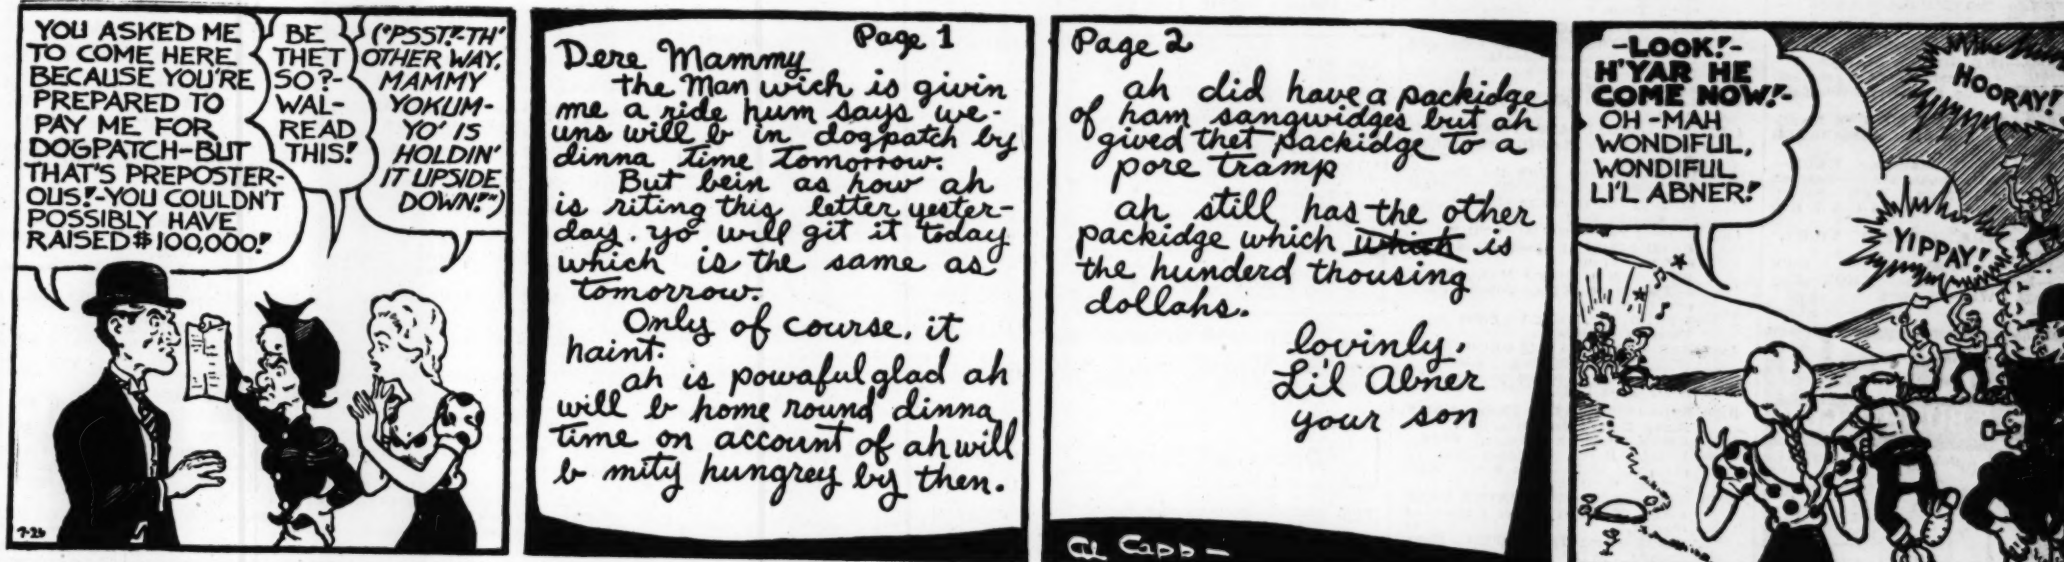 YOU ASKED ME
TO COME HERE
BECAUSE YOU'RE
PREPARED TO
PAY ME FOR
DOGPATCH-BUT
THAT'S PREPOSTER-
OUS!-YOU COULDN'T
POSSIBLY HAVE
RAISED $100,000!
BE
THET
SO?-
WAL-
READ
THIS!
("PSST!-TH'
OTHER WAY,
MAMMY
YOKUM-
YO' IS
HOLDIN'
IT UPSIDE
DOWN!")
7-26
Page 1
Dere Mammy
the Man wich is givin
me a ride hum says we-
uns will b in dogpatch by
dinna time tomorrow.
But bein as how ah
is riting this letter yester-
day. yo will git it today
which is the same as
tomorrow.
Only of course, it
haint.
ah is powaful glad ah
will b home round dinna
time on account of ah will
b mity hungrey by then.
Page 2
ah did have a packidge
of ham sangwidges but ah
gived thet packidge to a
pore tramp
ah still has the other
packidge which which is
the hunderd thousing
dollahs.
lovinly,
Li'l Abner
your son
Al Capp-
-LOOK!-
H'YAR HE
COME NOW!-
OH-MAH
WONDIFUL,
WONDIFUL
LI'L ABNER!
HOORAY!
YIPPAY!